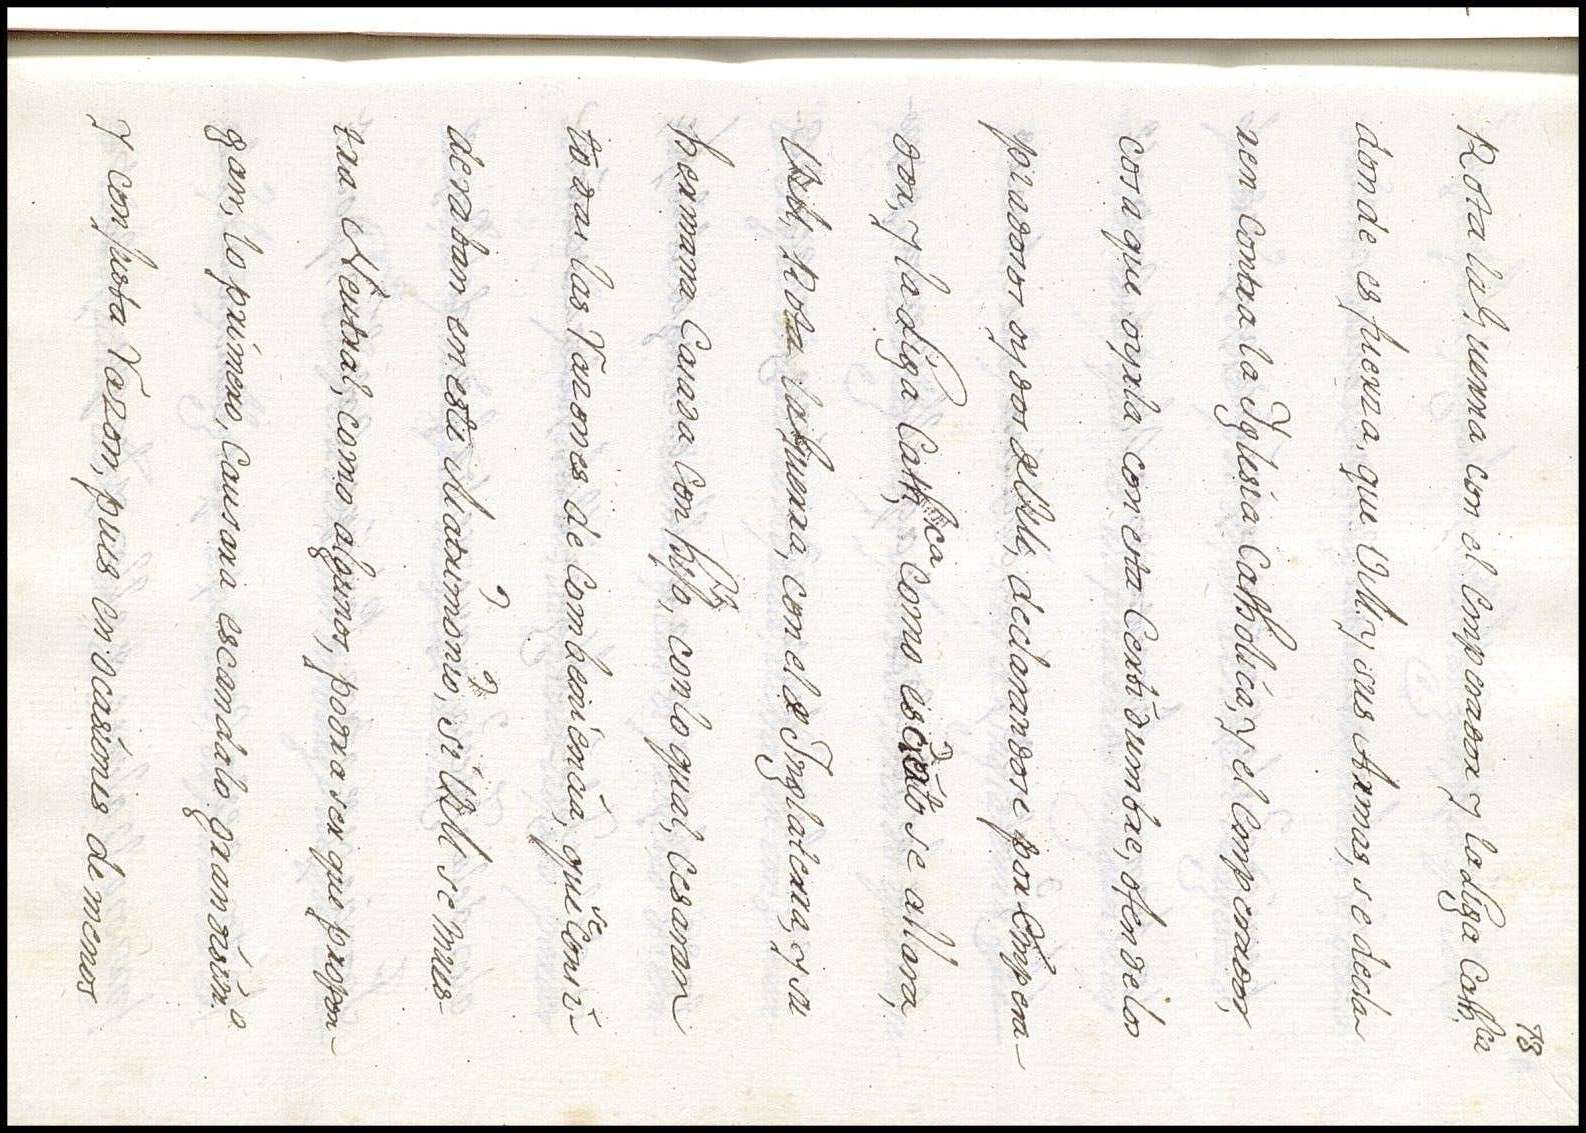 78
Rota la guerra con el Emperador y la Liga Cathca
donde es fuerza, que VM. y sus Armas, se decla
ren Contra la Iglesia Catholica, y el Emperador,
cosa que oyrla con esta Certidumbre, ofendelos
piadosos oydos d VM, declarandose por Empera-
dor, y la Liga Cathca, Como es cierto se allara,
VM, Rota la guerra, con el d Inglaterra, y su
hermana Casada Con hijo, con lo qual, Cesaran
todas las Razones de Combeniencia, que se Consi-
deraban en este Matrimonio, si VM se mues-
tra Neutral, como algunos, podra ser que propon-
gan, lo primero, Causara escandalo grandisimo
y con justa Razon, pues en ocasiones de menos